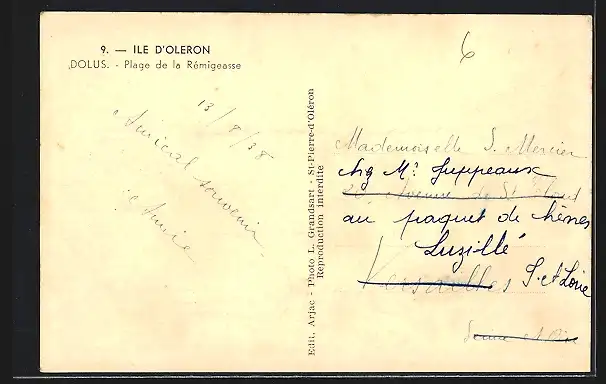 9. — ILE D'OLERON
DOLUS. - Plage de la Rémigeasse
13/8/38
Amical souvenir
Annie
Edit. Arjac - Photo L. Grandsart - St-Pierre-d'Oléron
Reproduction interdite
6
Mademoiselle S. Mercier
chez Mr
Avenue de St
au paquet de
Luzillé
Versailles I. et Loire
Seine et Oise